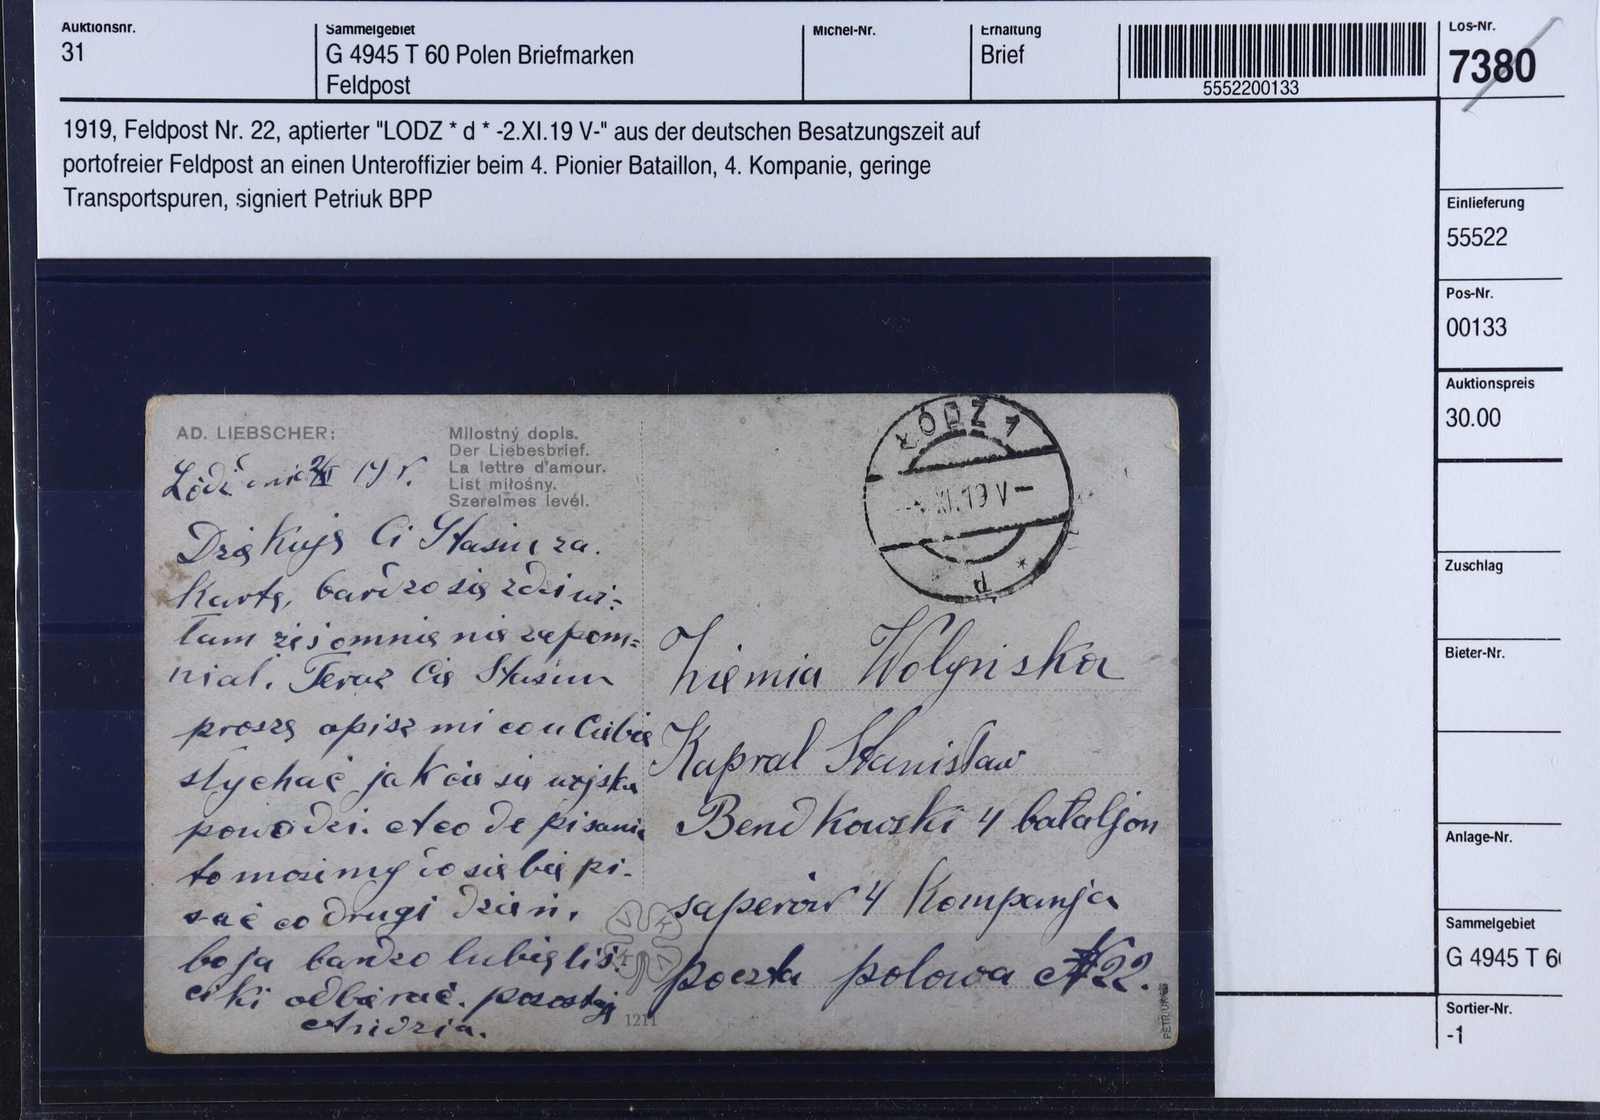 Auktionsnr.
31
Sammelgebiet
G 4945 T 60 Polen Briefmarken
Feldpost
Michel-Nr.
Erhaltung
Brief
5552200133
Los-Nr.
7380
1919, Feldpost Nr. 22, aptierter "LODZ * d * -2.XI.19 V-" aus der deutschen Besatzungszeit auf
portofreier Feldpost an einen Unteroffizier beim 4. Pionier Bataillon, 4. Kompanie, geringe
Transportspuren, signiert Petriuk BPP
Einlieferung
55522
Pos-Nr.
00133
Auktionspreis
30.00
Zuschlag
Bieter-Nr.
Anlage-Nr.
Sammelgebiet
G 4945 T 6
Sortier-Nr.
-1
AD. LIEBSCHER:
Milostný dopis.
Der Liebesbrief.
La lettre d'amour.
List miłosny.
Szerelmes levél.
ŁÓDZ 1
XI.19 V-
Łódź dnia 2/XI 19 r.
Dziękuję Ci Stasiu za
kartę, bardzo się zdziwi=
łam żeś o mnie nie zapom=
niał. Teraz Cię Stasiu
proszę opisz mi co u Ciebie
słychać jak ci się wojsku
powodzi. A co do pisania
to możemy do siebie pi-
sać co drugi dzień,
bo ja bardzo lubię liś-
ciki odbierać. pozostaję
Andzia.
Ziemia Wolyńska
Kapral Stanisław
Bendkowski 4 bataljon
saperów 4 Kompanja
poczta polowa № 22.
K V K V
1211
PETRIUK